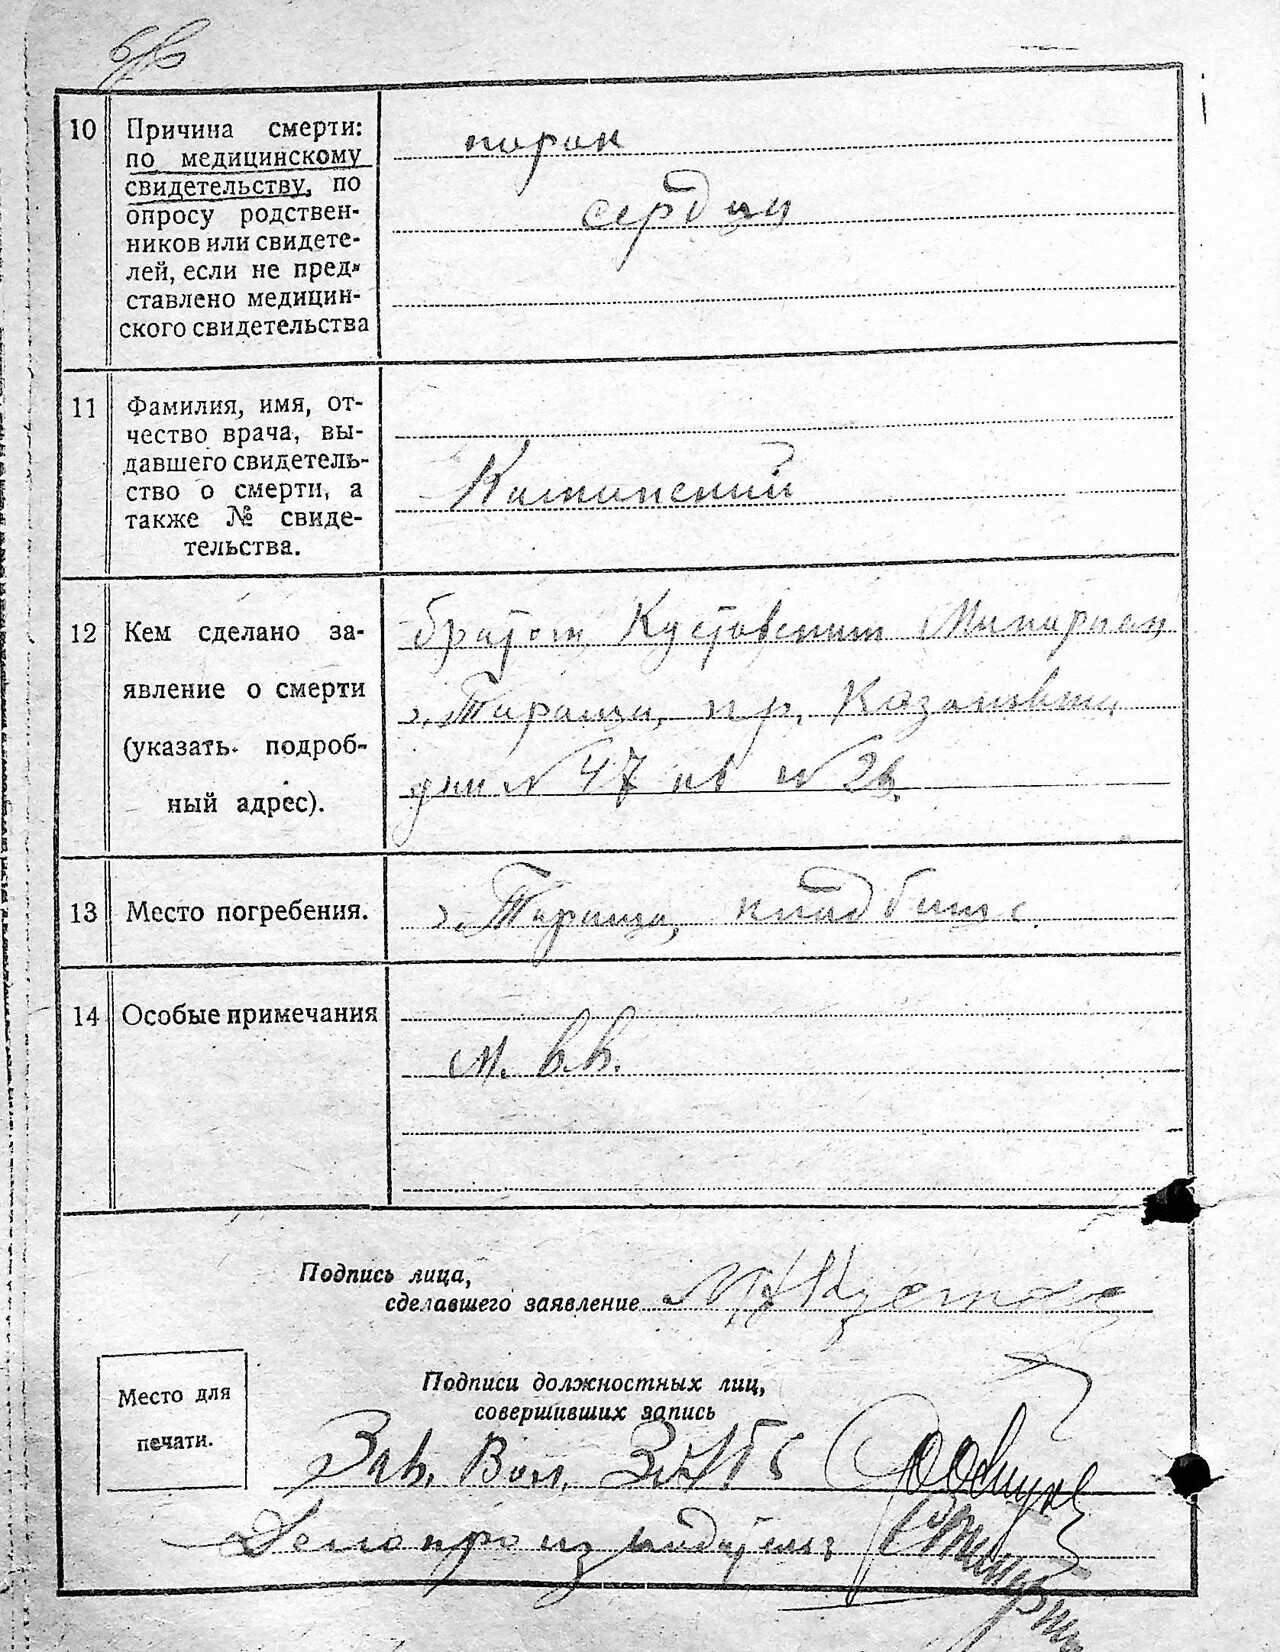 б/в
10 Причина смерти:
по медицинскому
свидетельству, по
опросу родствен-
ников или свидете-
лей, если не пред-
ставлено медицин-
ского свидетельства
порок
сердца
11 Фамилия, имя, от-
чество врача, вы-
давшего свидетель-
ство о смерти, а
также № свиде-
тельства.
12 Кем сделано за-
явление о смерти
(указать подроб-
ный адрес).
братом, Кустовским
г. Тараща, пр.
№ 47 кв № 26.
13 Место погребения.
г. Тараща, кладбище.
14 Особые примечания
М. в.в.
Подпись лица,
сделавшего заявление
Место для
печати.
Подписи должностных лиц,
совершивших запись
Зав.
Делопроизводитель